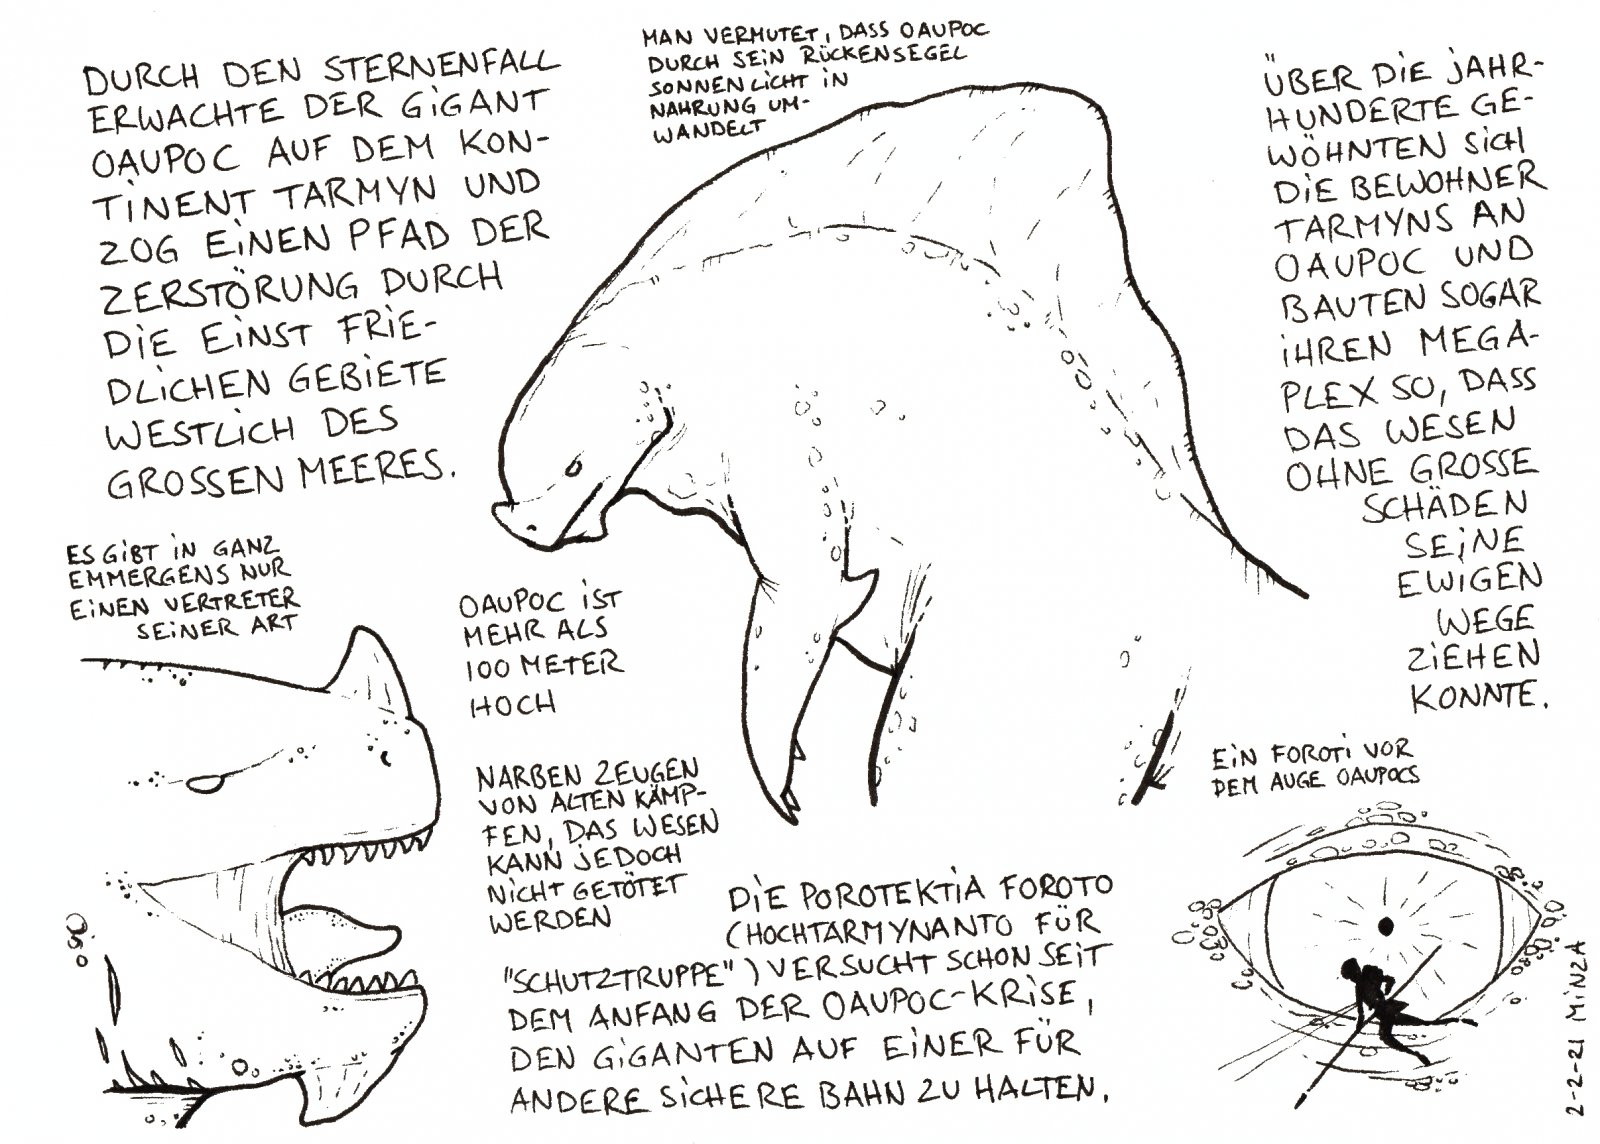 DURCH DEN STERNENFALL
ERWACHTE DER GIGANT
OAUPOC AUF DEM KON-
TINENT TARMYN UND
ZOG EINEN PFAD DER
ZERSTÖRUNG DURCH
DIE EINST FRIE-
DLICHEN GEBIETE
WESTLICH DES
GROSSEN MEERES.
MAN VERMUTET, DASS OAUPOC
DURCH SEIN RÜCKENSEGEL
SONNENLICHT IN
NAHRUNG UM-
WANDELT
ÜBER DIE JAHR-
HUNDERTE GE-
WÖHNTEN SICH
DIE BEWOHNER
TARMYNS AN
OAUPOC UND
BAUTEN SOGAR
IHREN MEGA-
PLEX SO, DASS
DAS WESEN
OHNE GROSSE
SCHÄDEN
SEINE
EWIGEN
WEGE
ZIEHEN
KONNTE.
ES GIBT IN GANZ
EMMERGENS NUR
EINEN VERTRETER
SEINER ART
OAUPOC IST
MEHR ALS
100 METER
HOCH
NARBEN ZEUGEN
VON ALTEN KÄMP-
FEN, DAS WESEN
KANN JEDOCH
NICHT GETÖTET
WERDEN
EIN FOROTI VOR
DEM AUGE OAUPOCS
DIE POROTEKTIA FOROTO
(HOCHTARMYNANTO FÜR
"SCHUTZTRUPPE") VERSUCHT SCHON SEIT
DEM ANFANG DER OAUPOC-KRISE,
DEN GIGANTEN AUF EINER FÜR
ANDERE SICHERE BAHN ZU HALTEN.
2-2-21 MINZA